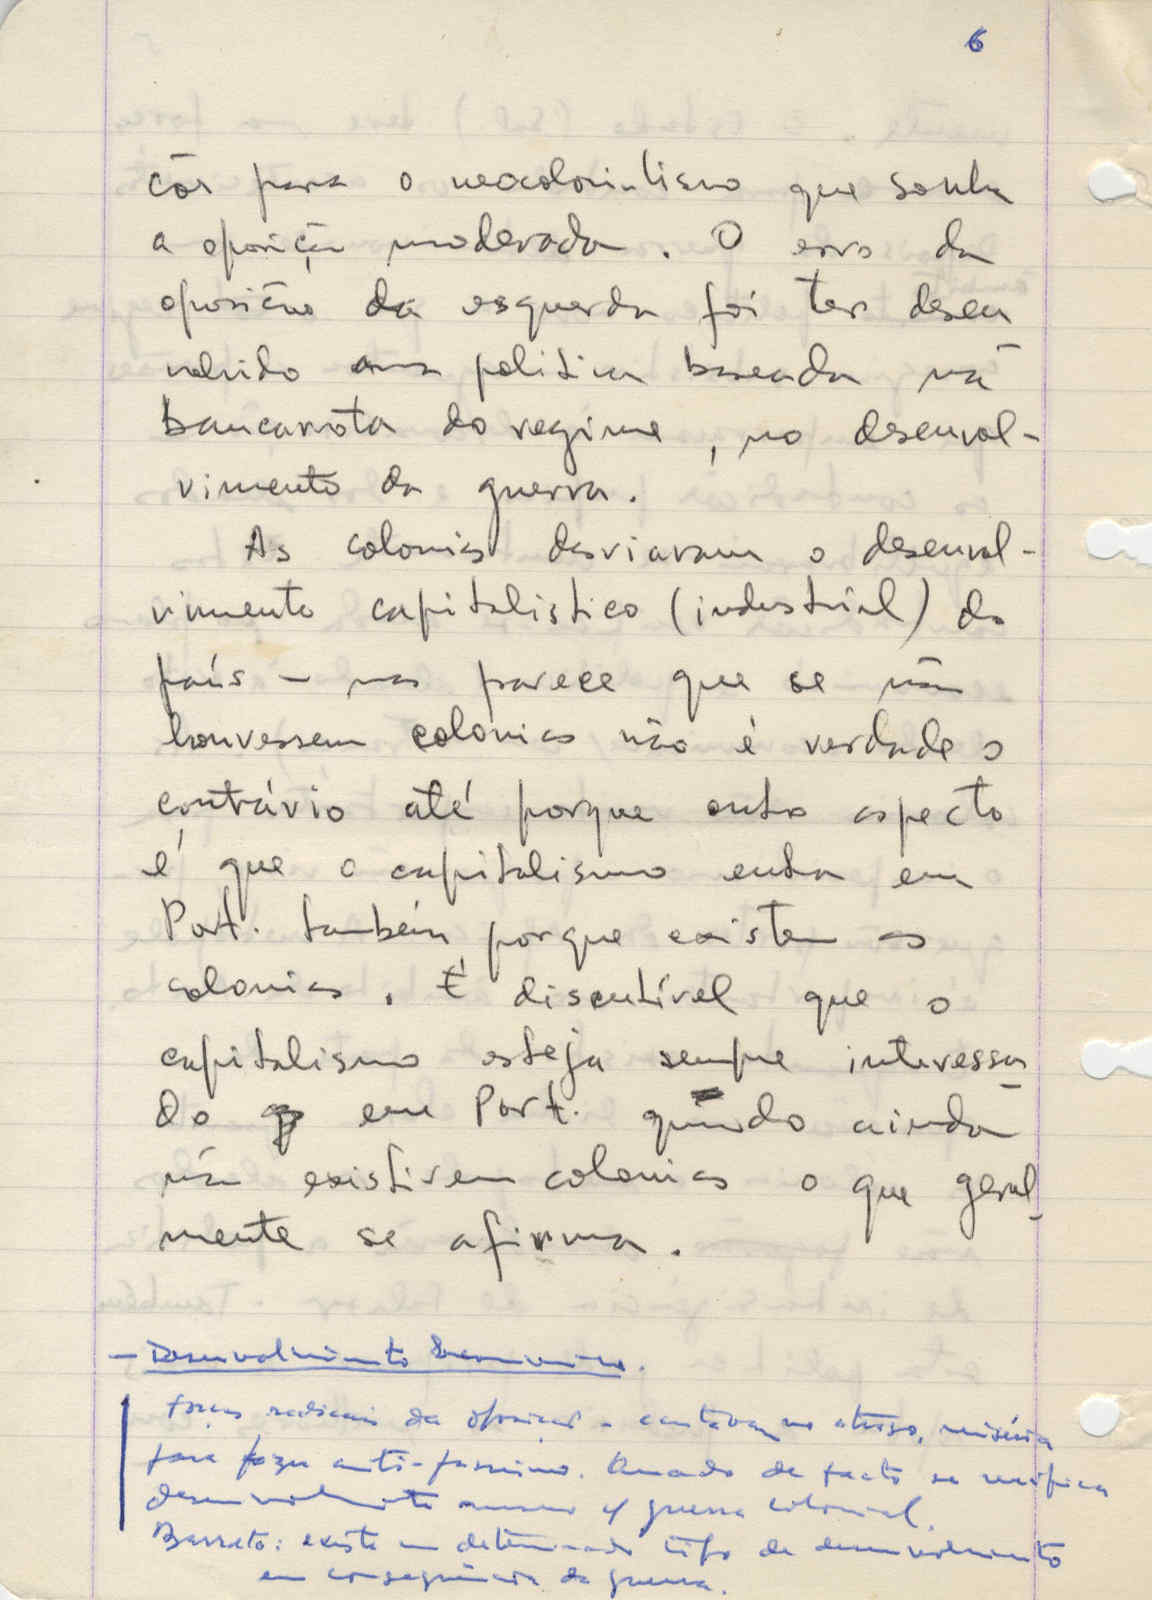 6
ções para o neocolonialismo que sonha
a oposição moderada. O erro da
oposição da esquerda foi ter desen
volvido uma politica baseada na
bancarrota do regime, no desenvol-
vimento da guerra.
As colonias desviavam o desenvol-
vimento capitalistico (industrial) do
país — mas parece que se não
houvessem colonias não é verdade o
contrário até porque outro aspecto
é que o capitalismo entra em
Port. também porque existem as
colonias. É discutível que o
capitalismo esteja sempre interessa-
do em Port. quando ainda
não existirem colonias o que geral-
mente se afirma.
— Desenvolvimento Economico.
Forças radicais da oposição - contavam no atraso, miséria
para fazer anti-fascismo. Quando de facto se verifica
desenvolvimento mesmo c/ guerra colonial.
Barreto: existe um determinado tipo de desenvolvimento
em consequência da guerra.